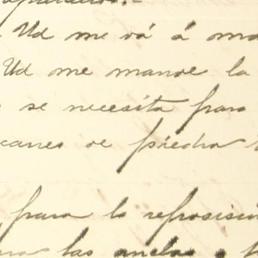 Ud me vá á
Ud me mande la
se necesita para
de piedra
para la reposició
las anclas